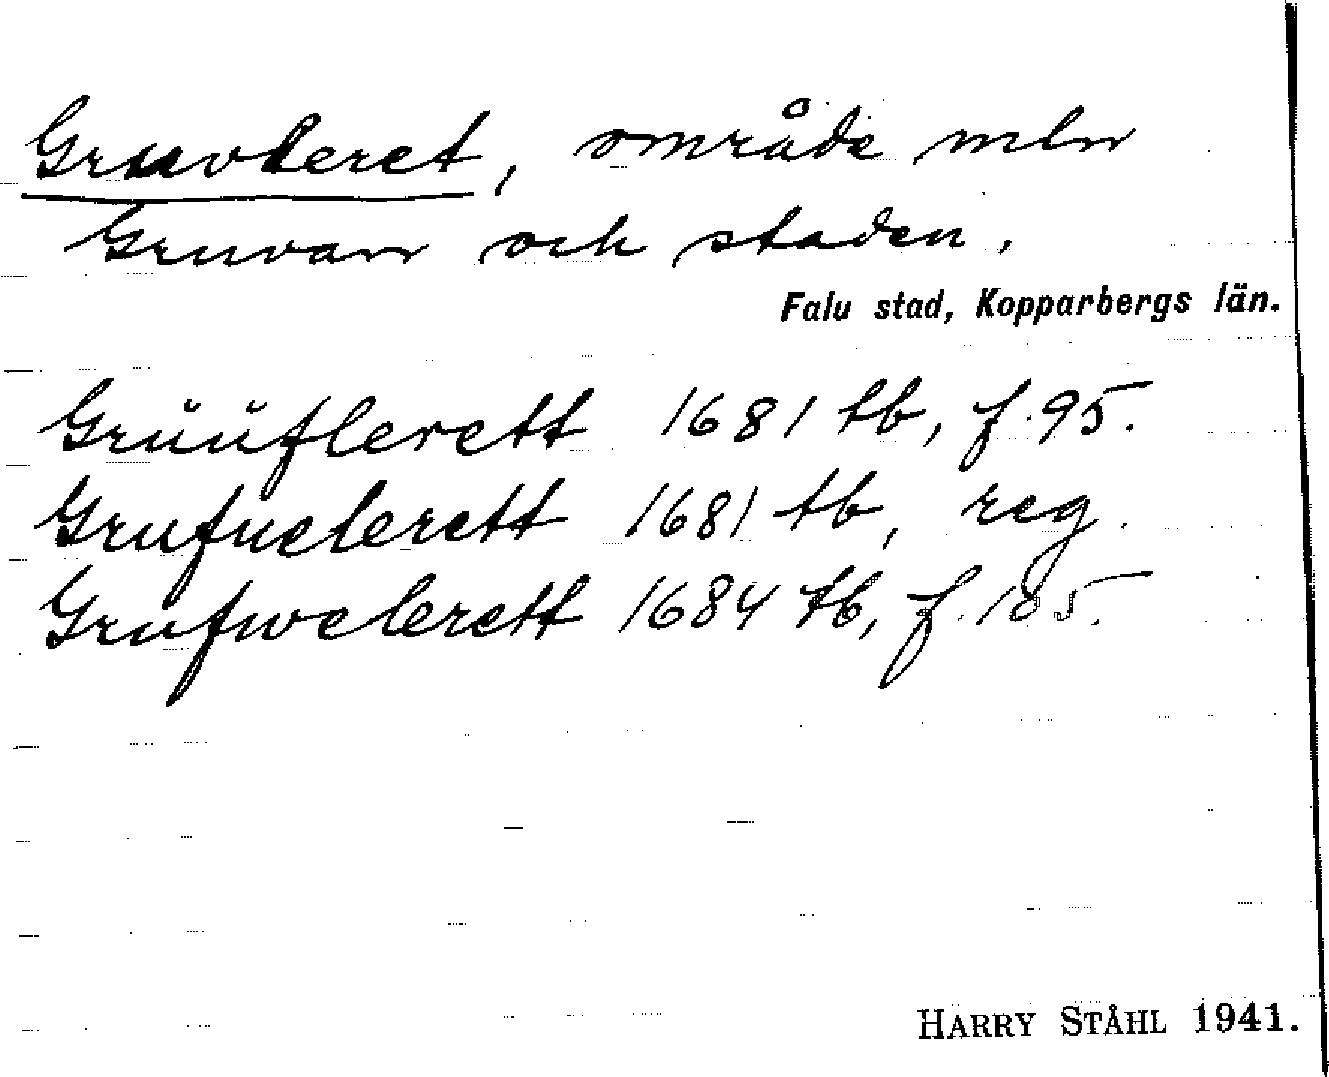 Gruvleret, område mln
Gruvan och staden.
Falu stad, Kopparbergs län.
Grŭŭflerett 1681 tb, f. 95.
Grufuelerett 1681 tb, reg.
Grufwelerett 1684 tb, f. 105.
HARRY STÅHL 1941.